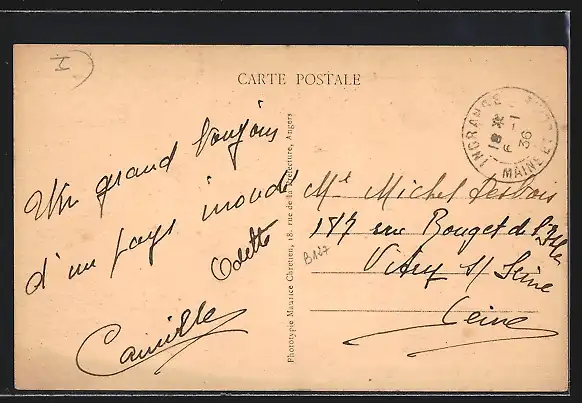 I
CARTE POSTALE
Un grand bonjour
d'un pays inondé
Odette
Camille
Phototypie Maurice Chrétien, 18, rue de la Préfecture, Angers
INGRANDE
18
6 - 1
36
MAINE ET
Mr Michel Desbois
187 rue Rouget de l'Isle
Vitry s/ Seine
Seine